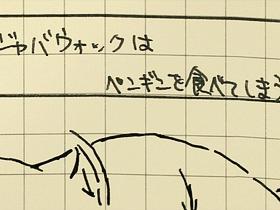 ジャバウォックは
ペンギンを食べてしまう